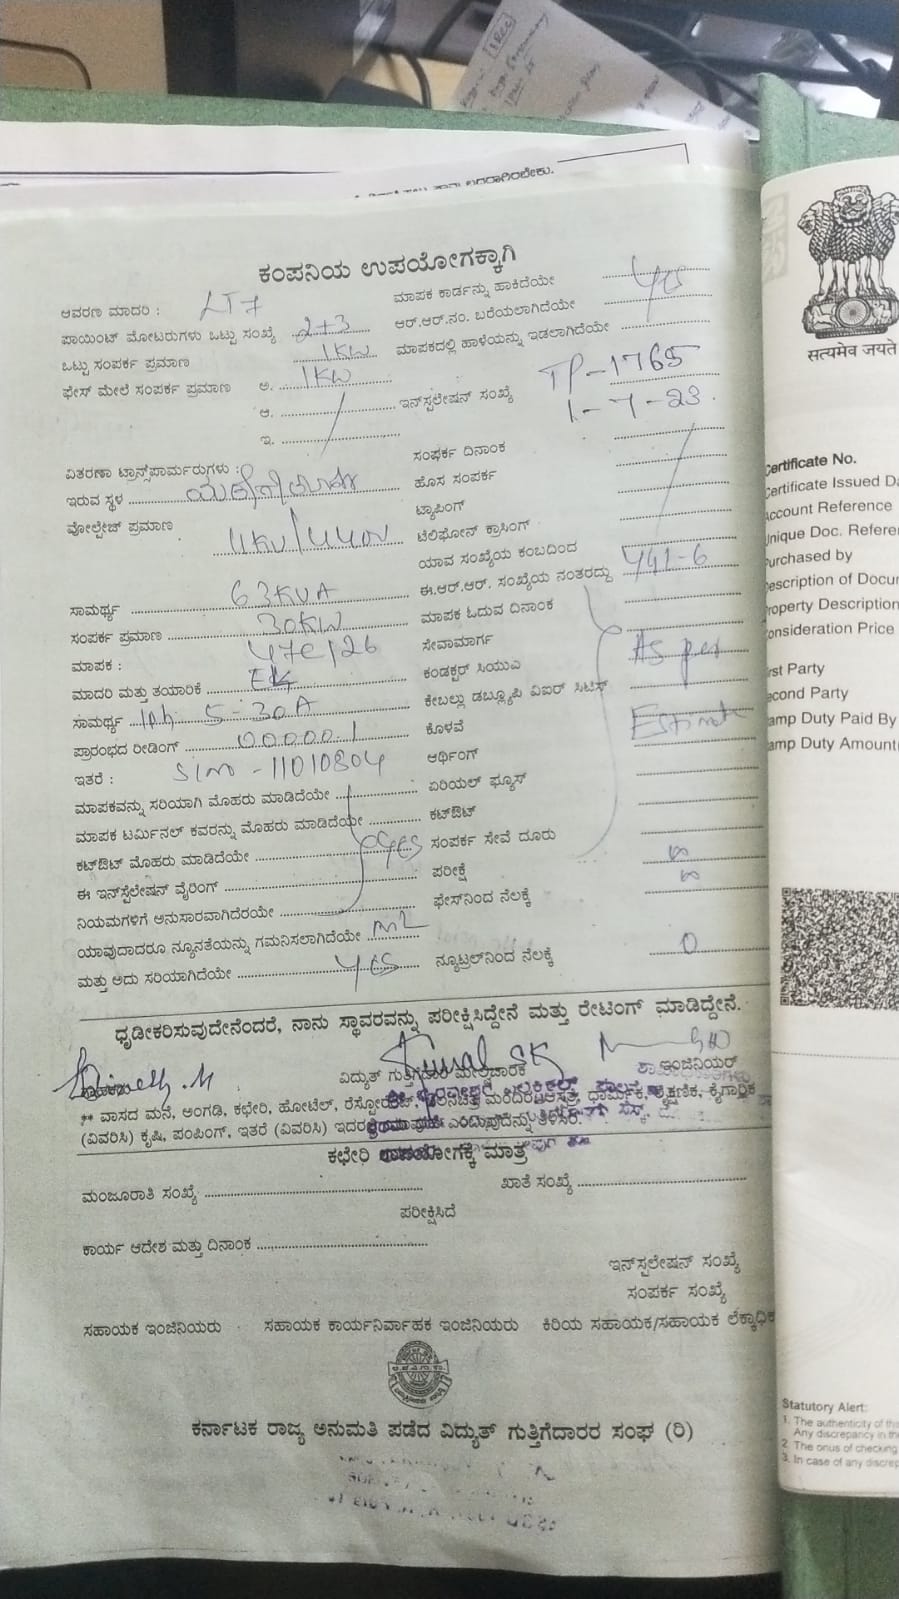 ಬದರಾಗಿರಬೇಕು.
ಕಂಪನಿಯ ಉಪಯೋಗಕ್ಕಾಗಿ
ಆವರಣ ಮಾದರಿ : LT7
ಪಾಯಿಂಟ್ ಮೋಟರುಗಳು ಒಟ್ಟು ಸಂಖ್ಯೆ 2+3
ಒಟ್ಟು ಸಂಪರ್ಕ ಪ್ರಮಾಣ 1KW
ಫೇಸ್ ಮೇಲೆ ಸಂಪರ್ಕ ಪ್ರಮಾಣ ಅ. 1KW
ಆ.
ಇ.
ವಿತರಣಾ ಟ್ರಾನ್ಸ್‌ಫಾರ್ಮರುಗಳು :
ಇರುವ ಸ್ಥಳ
ವೋಲ್ಟೇಜ್ ಪ್ರಮಾಣ 11KV/440V
ಸಾಮರ್ಥ್ಯ 63KVA
ಸಂಪರ್ಕ ಪ್ರಮಾಣ 30KW
ಮಾಪಕ :
ಮಾದರಿ ಮತ್ತು ತಯಾರಿಕೆ
ಸಾಮರ್ಥ್ಯ 1ph 5-30A
ಪ್ರಾರಂಭದ ರೀಡಿಂಗ್ 00000.1
ಇತರೆ : Slno - 11010804
ಮಾಪಕವನ್ನು ಸರಿಯಾಗಿ ಮೊಹರು ಮಾಡಿದೆಯೇ
ಮಾಪಕ ಟರ್ಮಿನಲ್ ಕವರನ್ನು ಮೊಹರು ಮಾಡಿದೆಯೇ
ಕಟ್‌ಔಟ್ ಮೊಹರು ಮಾಡಿದೆಯೇ yes
ಈ ಇನ್‌ಸ್ಟಲೇಷನ್ ವೈರಿಂಗ್
ನಿಯಮಗಳಿಗೆ ಅನುಸಾರವಾಗಿದೆರಯೇ
ಯಾವುದಾದರೂ ನ್ಯೂನತೆಯನ್ನು ಗಮನಿಸಲಾಗಿದೆಯೇ
ಮತ್ತು ಅದು ಸರಿಯಾಗಿದೆಯೇ yes
ಮಾಪಕ ಕಾರ್ಡನ್ನು ಹಾಕಿದೆಯೇ
ಆರ್.ಆರ್.ನಂ. ಬರೆಯಲಾಗಿದೆಯೇ yes
ಮಾಪಕದಲ್ಲಿ ಹಾಳೆಯನ್ನು ಇಡಲಾಗಿದೆಯೇ
ಇನ್‌ಸ್ಟಲೇಷನ್ ಸಂಖ್ಯೆ TP-1765
1-7-23.
ಸಂಪರ್ಕ ದಿನಾಂಕ
ಹೊಸ ಸಂಪರ್ಕ
ಟ್ಯಾಪಿಂಗ್
ಟೆಲಿಫೋನ್ ಕ್ರಾಸಿಂಗ್
ಯಾವ ಸಂಖ್ಯೆಯ ಕಂಬದಿಂದ
ಈ.ಆರ್.ಆರ್. ಸಂಖ್ಯೆಯ ನಂತರದ್ದು
ಮಾಪಕ ಓದುವ ದಿನಾಂಕ
ಸೇವಾಮಾರ್ಗ
ಕಂಡಕ್ಟರ್ ಸಿಯುವಿ As per
ಕೇಬಲ್ಲು ಡಬ್ಲ್ಯೂಪಿ ವಿಐರ್ ಸಿಟಿಸ್
ಕೊಳವೆ Estimate
ಆರ್ಥಿಂಗ್
ಏರಿಯಲ್ ಫ್ಯೂಸ್
ಕಟ್‌ಔಟ್
ಸಂಪರ್ಕ ಸೇವೆ ದೂರು
ಪರೀಕ್ಷೆ ∞
ಫೇಸ್‌ನಿಂದ ನೆಲಕ್ಕೆ ∞
ನ್ಯೂಟ್ರಲ್‌ನಿಂದ ನೆಲಕ್ಕೆ 0
ಧೃಡೀಕರಿಸುವುದೇನೆಂದರೆ, ನಾನು ಸ್ಥಾವರವನ್ನು ಪರೀಕ್ಷಿಸಿದ್ದೇನೆ ಮತ್ತು ರೇಟಿಂಗ್ ಮಾಡಿದ್ದೇನೆ.
ವಿದ್ಯುತ್ ಗುತ್ತಿಗೆದಾರ ಮೇಲ್ವಿಚಾರಕ ಇಂಜಿನಿಯರ್
** ವಾಸದ ಮನೆ, ಅಂಗಡಿ, ಕಛೇರಿ, ಹೋಟೆಲ್, ಧಾರ್ಮಿಕ, ಶೈಕ್ಷಣಿಕ, ಕೈಗಾರಿಕ
(ವಿವರಿಸಿ) ಕೃಷಿ, ಪಂಪಿಂಗ್, ಇತರೆ (ವಿವರಿಸಿ) ಎಂಬುವುದನ್ನು ತಿಳಿಸಿರಿ.
ಕಛೇರಿ ಉಪಯೋಗಕ್ಕೆ ಮಾತ್ರ
ಮಂಜೂರಾತಿ ಸಂಖ್ಯೆ ಖಾತೆ ಸಂಖ್ಯೆ
ಪರೀಕ್ಷಿಸಿದೆ
ಕಾರ್ಯ ಆದೇಶ ಮತ್ತು ದಿನಾಂಕ
ಇನ್‌ಸ್ಟಲೇಷನ್ ಸಂಖ್ಯೆ
ಸಂಪರ್ಕ ಸಂಖ್ಯೆ
ಸಹಾಯಕ ಇಂಜಿನಿಯರು ಸಹಾಯಕ ಕಾರ್ಯನಿರ್ವಾಹಕ ಇಂಜಿನಿಯರು ಕಿರಿಯ ಸಹಾಯಕ/ಸಹಾಯಕ ಲೆಕ್ಕಾಧಿಕ
ಕರ್ನಾಟಕ ರಾಜ್ಯ ಅನುಮತಿ ಪಡೆದ ವಿದ್ಯುತ್ ಗುತ್ತಿಗೆದಾರರ ಸಂಘ (ರಿ)
सत्यमेव जयते
Certificate No.
Certificate Issued Da
Account Reference
Unique Doc. Refere
Purchased by
Description of Docum
Property Description
Consideration Price
First Party
Second Party
Stamp Duty Paid By
Stamp Duty Amount
Statutory Alert:
1. The authenticity of this
Any discrepancy in the
2. The onus of checking
3. In case of any discrep